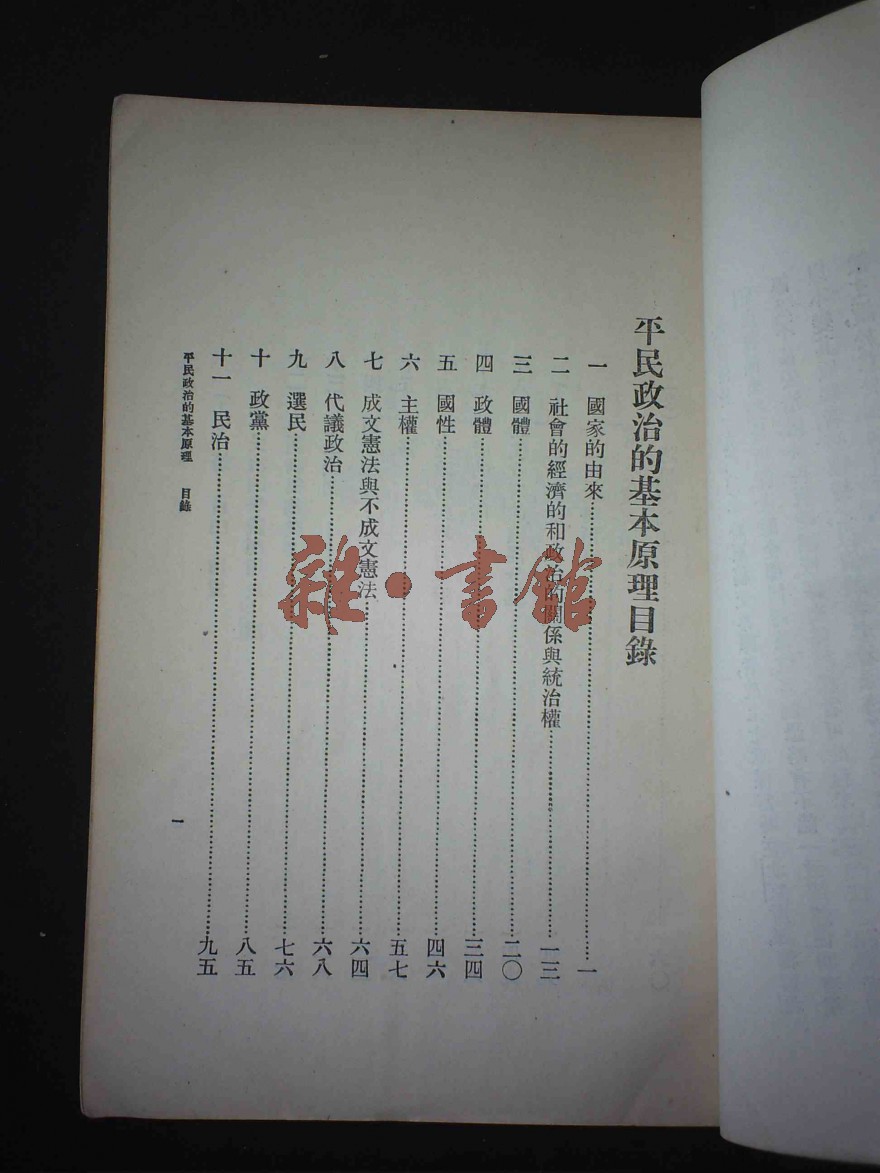 平民政治的基本原理目錄
一 國家的由來……一
二 社會的經濟的和政治的關係與統治權……一三
三 國體……二〇
四 政體……三四
五 國性……四六
六 主權……五七
七 成文憲法與不成文憲法……六四
八 代議政治……六八
九 選民……七六
十 政黨……八五
十一 民治……九五
平民政治的基本原理 目錄
一
雜·書館